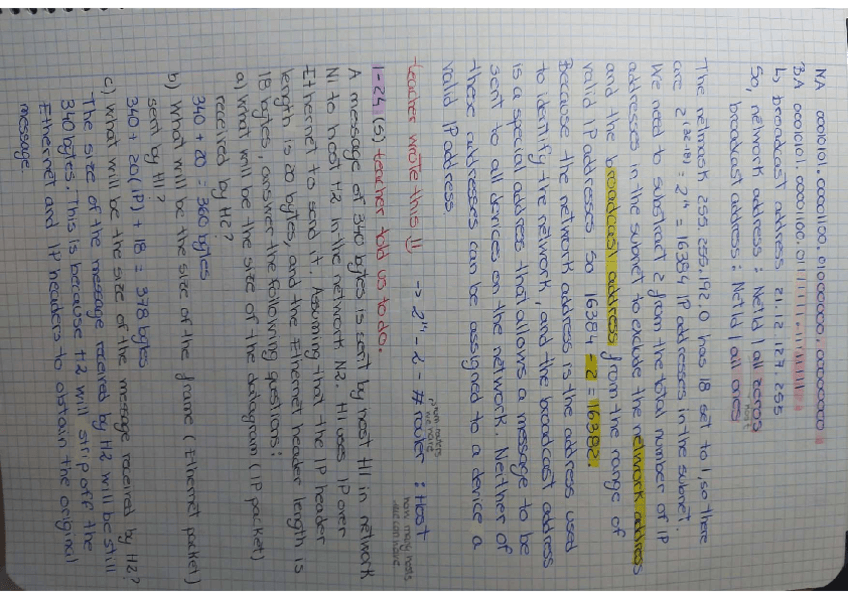 NA 00010101.00001100.01000000.00000000
BA 00010101.00001100.01111111.11111111
↳ broadcast address 21.12.127.255
So, network address : NetId | all zeros
host
broadcast address : NetId | all ones
The netmask 255.255.192.0 has 18 set to 1, so there
are 2^(32-18) = 2^14 = 16384 IP addresses in the subnet.
We need to substract 2 from the total number of IP
addresses in the subnet to exclude the network address
and the broadcast address from the range of
valid IP addresses. So 16384 - 2 = 16382.
Because the network address is the address used
to identify the network, and the broadcast address
is a special address that allows a message to be
sent to all devices on the network. Neither of
these addresses can be assigned to a device a
valid IP address
teacher wrote this !! → 2^14 - 2 - # router : Host
how many hosts
we can have
1-24 (S) teacher told us to do.
A message of 340 bytes is sent by host H1 in network
N1 to host H2 in the network N2. H1 uses IP over
Ethernet to send it. Assuming that the IP header
length is 20 bytes, and the Ethernet header length is
18 bytes, answer the following questions:
a) What will be the size of the datagram (IP packet)
received by H2?
340 + 20 = 360 bytes
b) What will be the size of the frame (Ethernet packet)
sent by H1?
340 + 20 (IP) + 18 = 378 bytes
c) What will be the size of the message received by H2?
The size of the message received by H2 will be still
340 bytes. This is because H2 will strip off the
Ethernet and IP headers to obtain the original
message